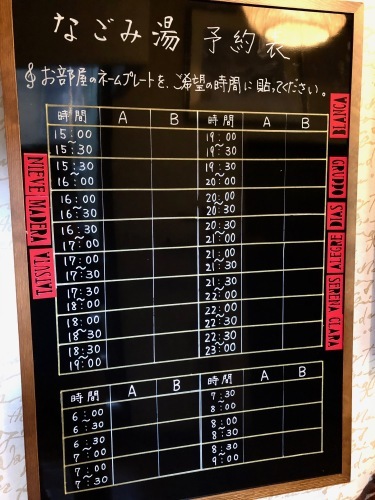 なごみ湯 予約表
お部屋のネームプレートを、ご希望の時間に貼ってください。
時間 A B 時間 A B
15:00～15:30 19:00～19:30
15:30～16:00 19:30～20:00
16:00～16:30 20:00～20:30
16:30～17:00 20:30～21:00
17:00～17:30 21:00～21:30
17:30～18:00 21:30～22:00
18:00～18:30 22:00～22:30
18:30～19:00 22:30～23:00
時間 A B 時間 A B
6:00～6:30 7:30～8:00
6:30～7:00 8:00～8:30
7:00～7:30 8:30～9:00
NIEVE MADERA
BLANCA
ALEGRE SERENA CLARA